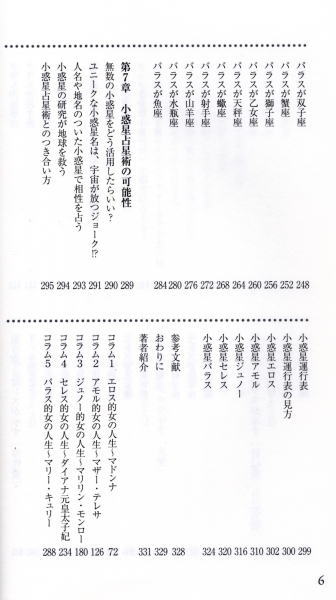 パラスが双子座 248
パラスが蟹座 252
パラスが獅子座 256
パラスが乙女座 260
パラスが天秤座 264
パラスが蠍座 268
パラスが射手座 272
パラスが山羊座 276
パラスが水瓶座 280
パラスが魚座 284
第7章 小惑星占星術の可能性 289
無数の小惑星をどう活用したらいい? 290
ユニークな小惑星名は、宇宙が放つジョーク!? 291
人名や地名のついた小惑星で相性を占う 293
小惑星の研究が地球を救う 294
小惑星占星術とのつき合い方 295
小惑星運行表 299
小惑星運行表の見方 300
小惑星エロス 302
小惑星アモル 310
小惑星ジュノー 316
小惑星セレス 320
小惑星パラス 324
参考文献 328
おわりに 329
著者紹介 331
コラム1 エロス的女の人生~マドンナ 72
コラム2 アモル的女の人生~マザー・テレサ 126
コラム3 ジュノー的女の人生~マリリン・モンロー 180
コラム4 セレス的女の人生~ダイアナ元皇太子妃 234
コラム5 パラス的女の人生~マリー・キュリー 288
6